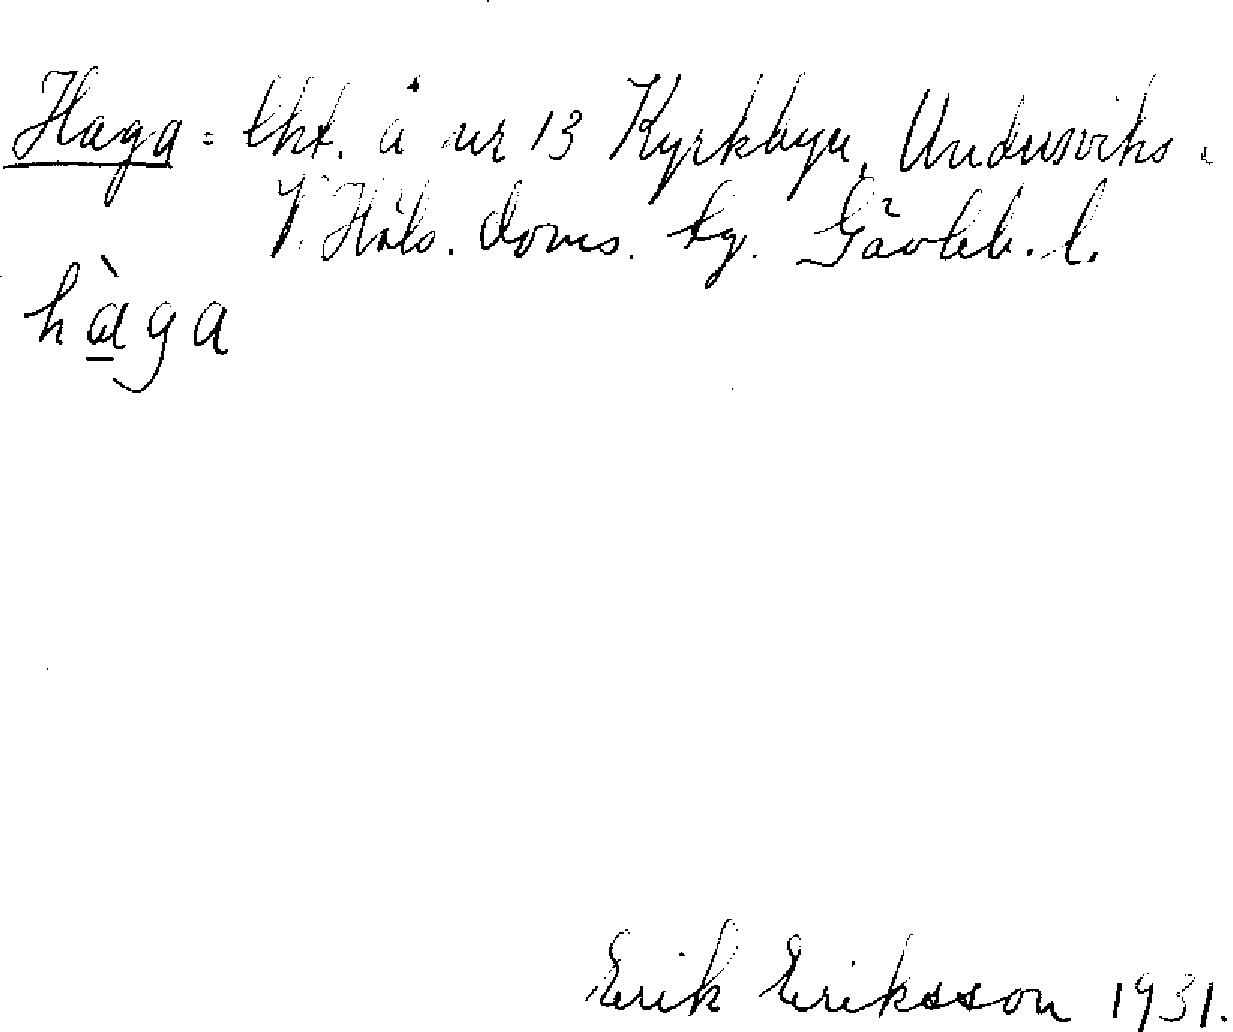 Haga = lht. å nr 13 Kyrkbyn, Undersviks
V. Häls. doms. tg. Gävleb. l.
hàga
Erik Eriksson 1931.